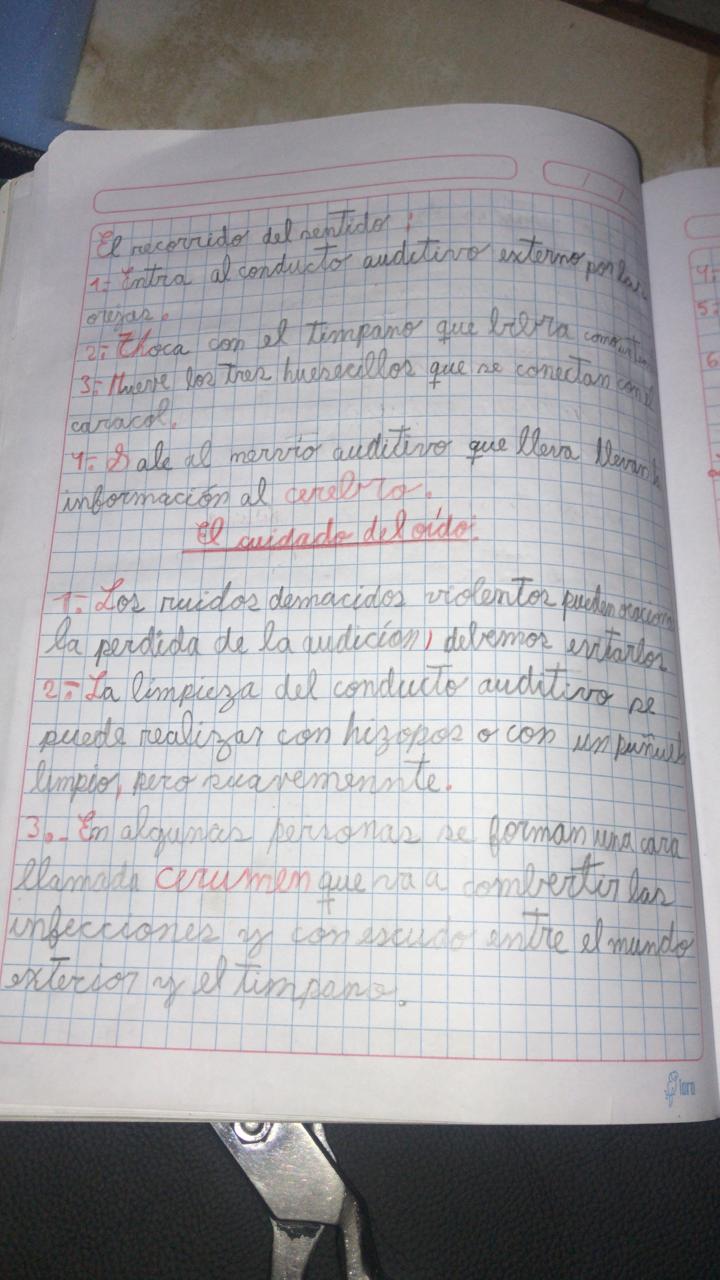 El recorrido del sentido:
1:- Entra al conducto auditivo externo por las
orejas.
2:- Choca con el timpano que bibra
3:- Mueve los tres huesecillos que se conectan con el
caracol.
4:- Sale al nervio auditivo que lleva
información al cerebro.
El cuidado del oído:
1:- Los ruidos demacidos violentos pueden
la perdida de la audición, debemos evitarlos
2:- La limpieza del conducto auditivo se
puede realizar con hizopos o con un
limpio, pero suavemennte.
3.- En algunas personas se forman una cara
llamada cerumen que va a combertir las
infecciones y con escudo entre el mundo
exterior y el timpano.
4:-
5:
6
loro